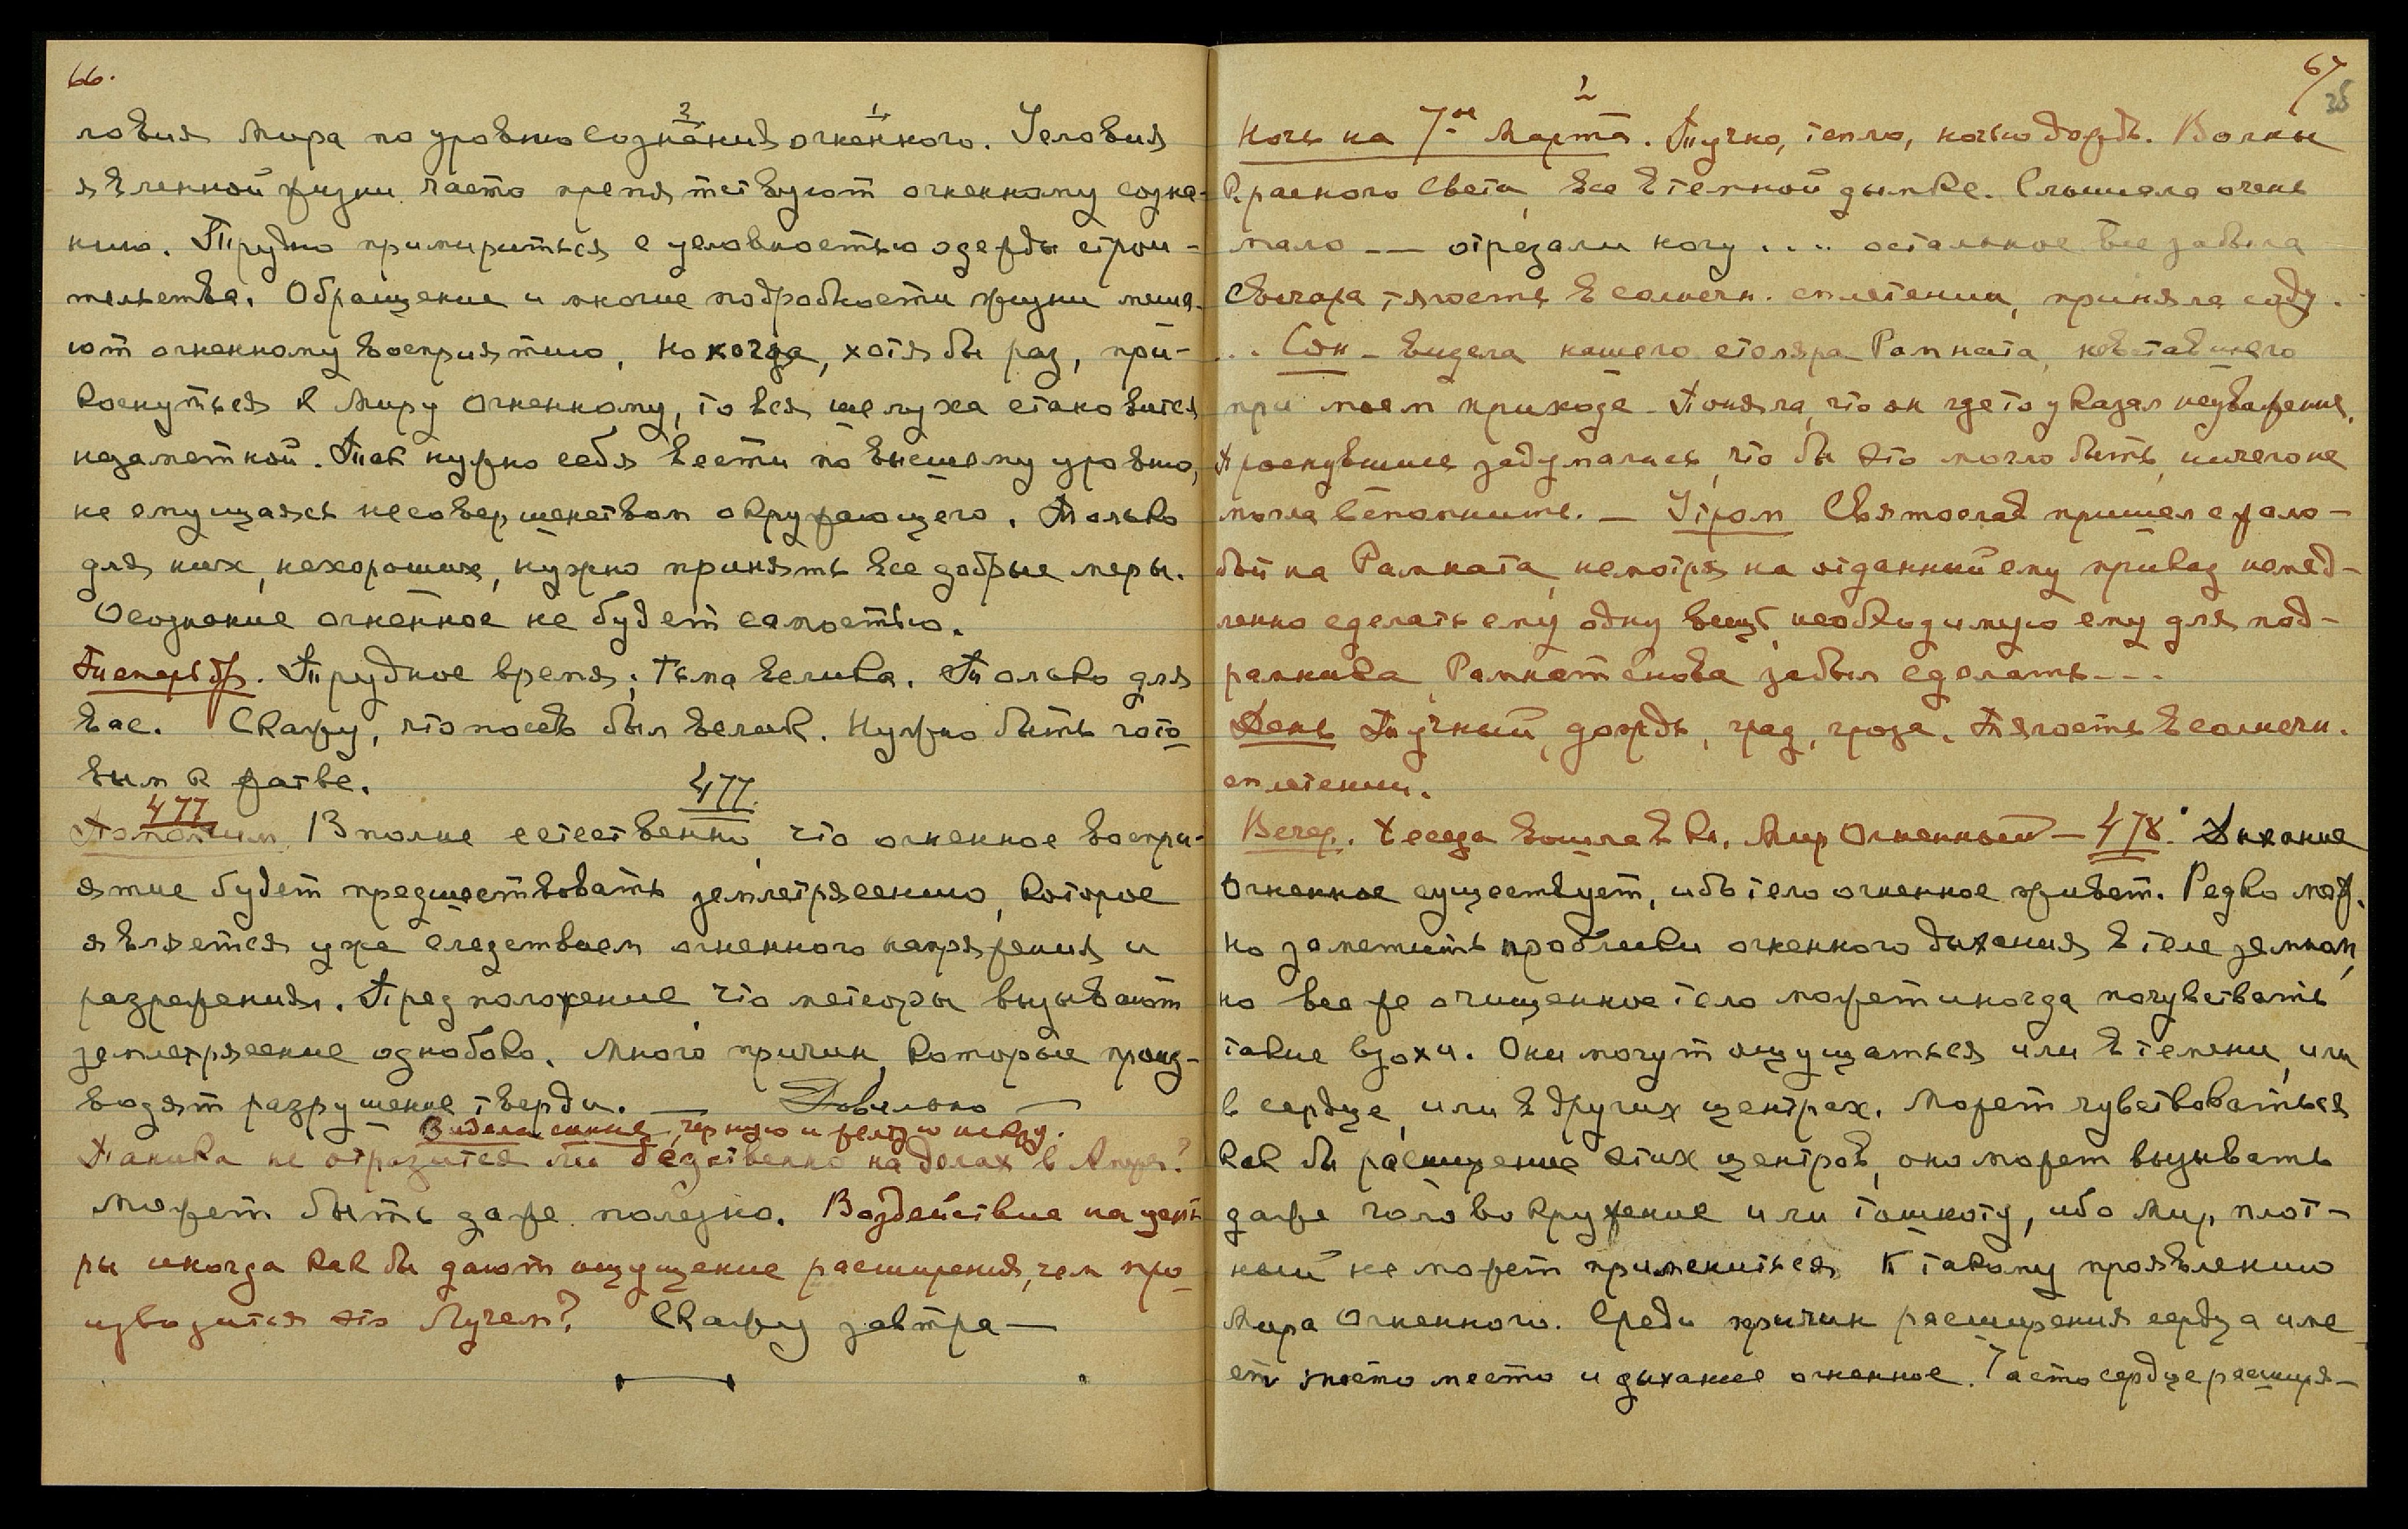 66.
ловия Мира по уровню сознания огненного. Условия
явленной жизни часто препятствуют огненному созна-
нию. Трудно примириться с условностью одежды строи-
тельства. Обращение и многие подробности жизни меша-
ют огненному восприятию, но когда, хотя бы раз, при-
коснуться к Миру Огненному, то вся шелуха становится
незаметной. Так нужно себя вести по высшему уровню,
не смущаясь несовершенством окружающего. Только
для них, нехороших, нужно принять все добрые меры.
Осознание огненное не будет самостью.
Трудное время; тьма велика. Только для
вас. Скажу, что посев был велик. Нужно быть гото-
вым к жатве.
477.
477
Вполне естественно, что огненное воспри-
ятие будет предшествовать землетрясению, которое
является уже следствием огненного напряжения и
разрежения. Предположение, что метеоры вызывают
землетрясение однобоко. Много причин, которые произ-
водят разрушение тверди. — Довольно —
Видела синюю, черную и желтую искру.
Паника не отразится ли бедственно на делах в Амер.?
Может быть даже полезно. Воздействие на цент-
ры иногда как бы дают ощущение расширения, чем про-
изводится это Лучем? Скажу завтра —
67
Ночь на 7-ое Марта. Тучно, тепло, ночью дождь. Волны
красного света, все в темной дымке. Слышала очень
мало — отрезали ногу .... остальное все забыла
С вечера тягость в солнечн. сплетении, приняла соду.
.. Сон – видела нашего столяра Рамната, не вставшего
при моем приходе – Поняла, что он где то указал неуважение,
Проснувшись задумалась, что бы это могло быть, ничего не
могла вспомнить. — Утром Святослав пришел с жало-
бой на Рамната, несмотря на отданный ему приказ немед-
ленно сделать ему одну вещь, необходимую ему для под-
рамника, Рамнат снова забыл сделать---
День Тучный, дождь, град, гроза. Тягость в солнечн.
сплетении.
Вечер. Беседа вошла в кн. Мир Огненный — 478. Дыхание
Огненное существует, ибо тело огненное живет. Редко мож-
но заметить проблески огненного дыхания в теле земном,
но все же очищенное тело может иногда почувствовать
такие вздохи. Они могут ощущаться или в темени, или
в сердце, или в других центрах. Может чувствоваться
как бы расширение этих центров, оно может вызывать
даже головокружение или тошноту, ибо Мир плот-
ный не может примениться к такому проявлению
Мира Огненного. Среди причин расширения сердца име-
ет место и дыхание огненное. Часто сердце расширя-